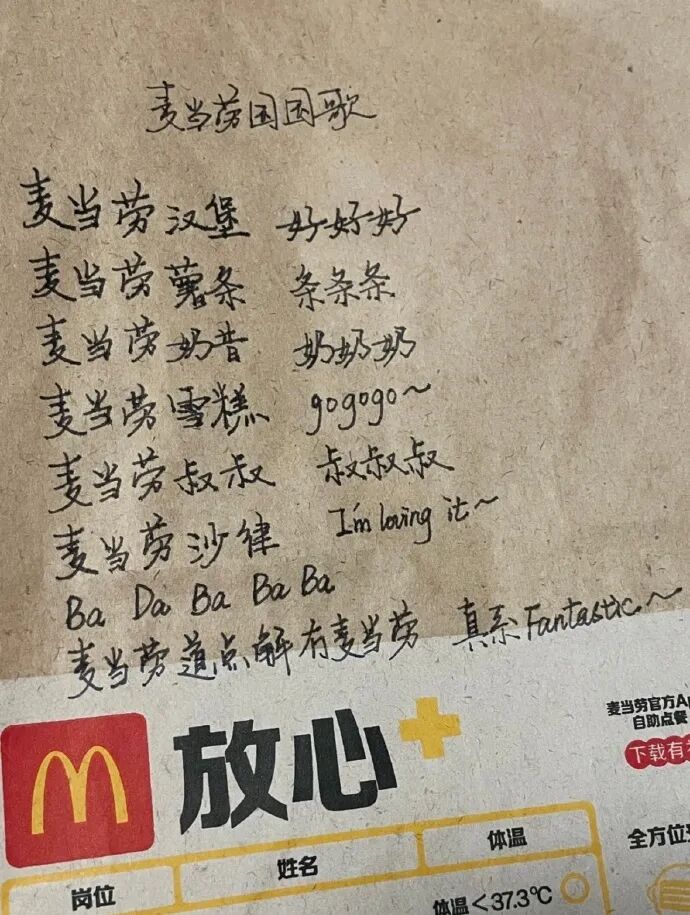 麦当劳国国歌
麦当劳汉堡 好好好
麦当劳薯条 条条条
麦当劳奶昔 奶奶奶
麦当劳雪糕 gogogo~
麦当劳叔叔 叔叔叔
麦当劳沙律 I'm loving it~
Ba Da Ba Ba Ba
麦当劳道点解有麦当劳 真系Fantastic~
麦当劳官方Ap
自助点餐
下载有
放心+
岗位 姓名 体温
体温<37.3℃
全方位